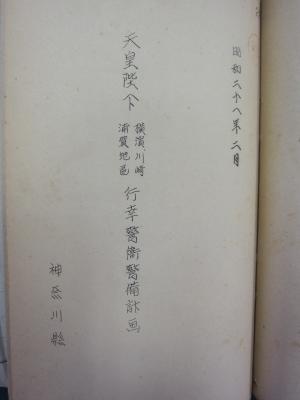 昭和二十八年二月
天皇陛下
横濱、川崎
浦賀地區
行幸警衛警備計画
神奈川縣